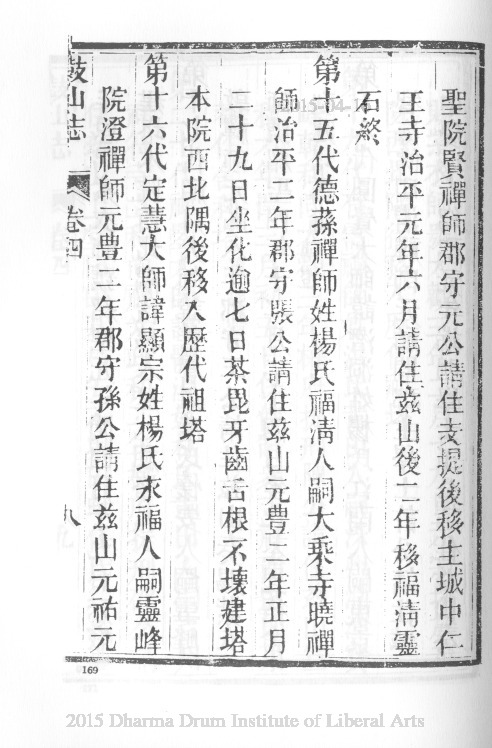 聖院賢禪師郡守元公請住支提後移主城中仁
王寺治平元年六月請住茲山後二年移福清靈
石終
第十五代德蓀禪師姓楊氏福清人嗣大乘寺曉禪
師治平二年郡守張公請住茲山元豊二年正月
二十九日坐化逾七日茶毘牙齒舌根不壞建塔
本院西北隅後移入歷代祖塔
第十六代定慧大師諱顯宗姓楊氏永福人嗣靈峰
院澄禪師元豊二年郡守孫公請住茲山元祐元
鼓山志 卷四 九
2015-04-1
169
2015 Dharma Drum Institute of Liberal Arts